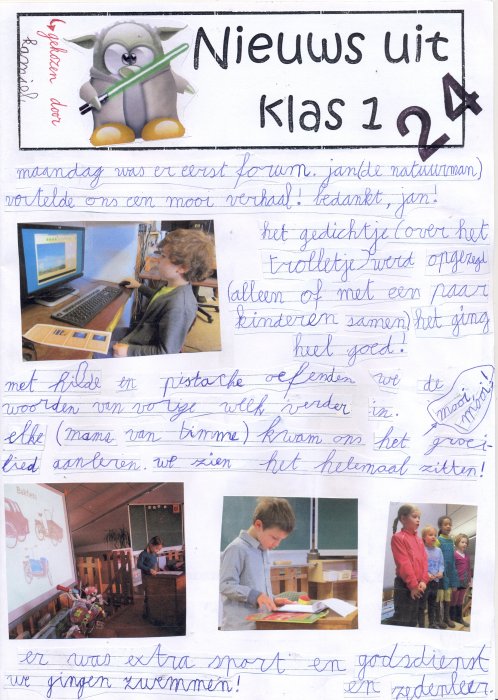 gekozen door
Nieuws uit
klas 1
24
maandag was er eerst forum. jan (de natuurman)
vertelde ons een mooi verhaal! bedankt, jan!
het gedichtje (over het
trolletje) werd opgezegd
(alleen of met een paar
kinderen samen) het ging
heel goed!
met hilde en pistache oefenden we de
woorden van vorige week verder in.
mooi
mooi!
elke (mama van timme) kwam ons het groei-
lied aanleren. we zien het helemaal zitten!
Bakfiets
er was extra sport en godsdienst
we gingen zwemmen! en zedenleer